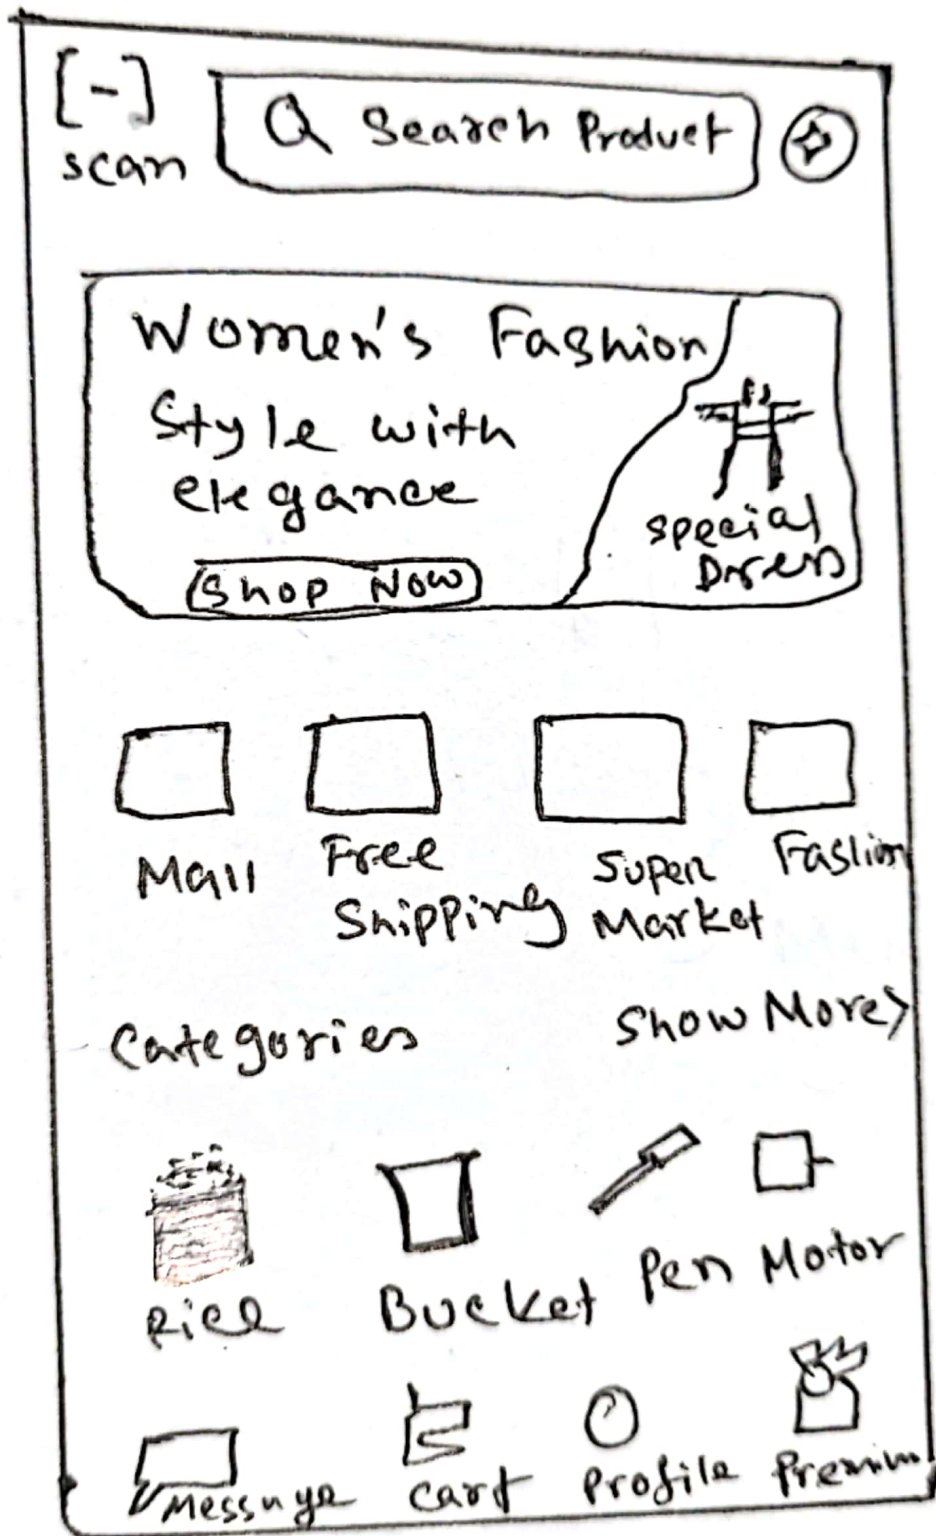 [-]
scan
Search Product
Women's Fashion
Style with
elegance
Shop Now
Special
Dress
Mall
Free
Shipping
Super
Market
Fashion
Categories
Show More>
Rice
Bucket
Pen
Motor
Message
Cart
Profile
Premium